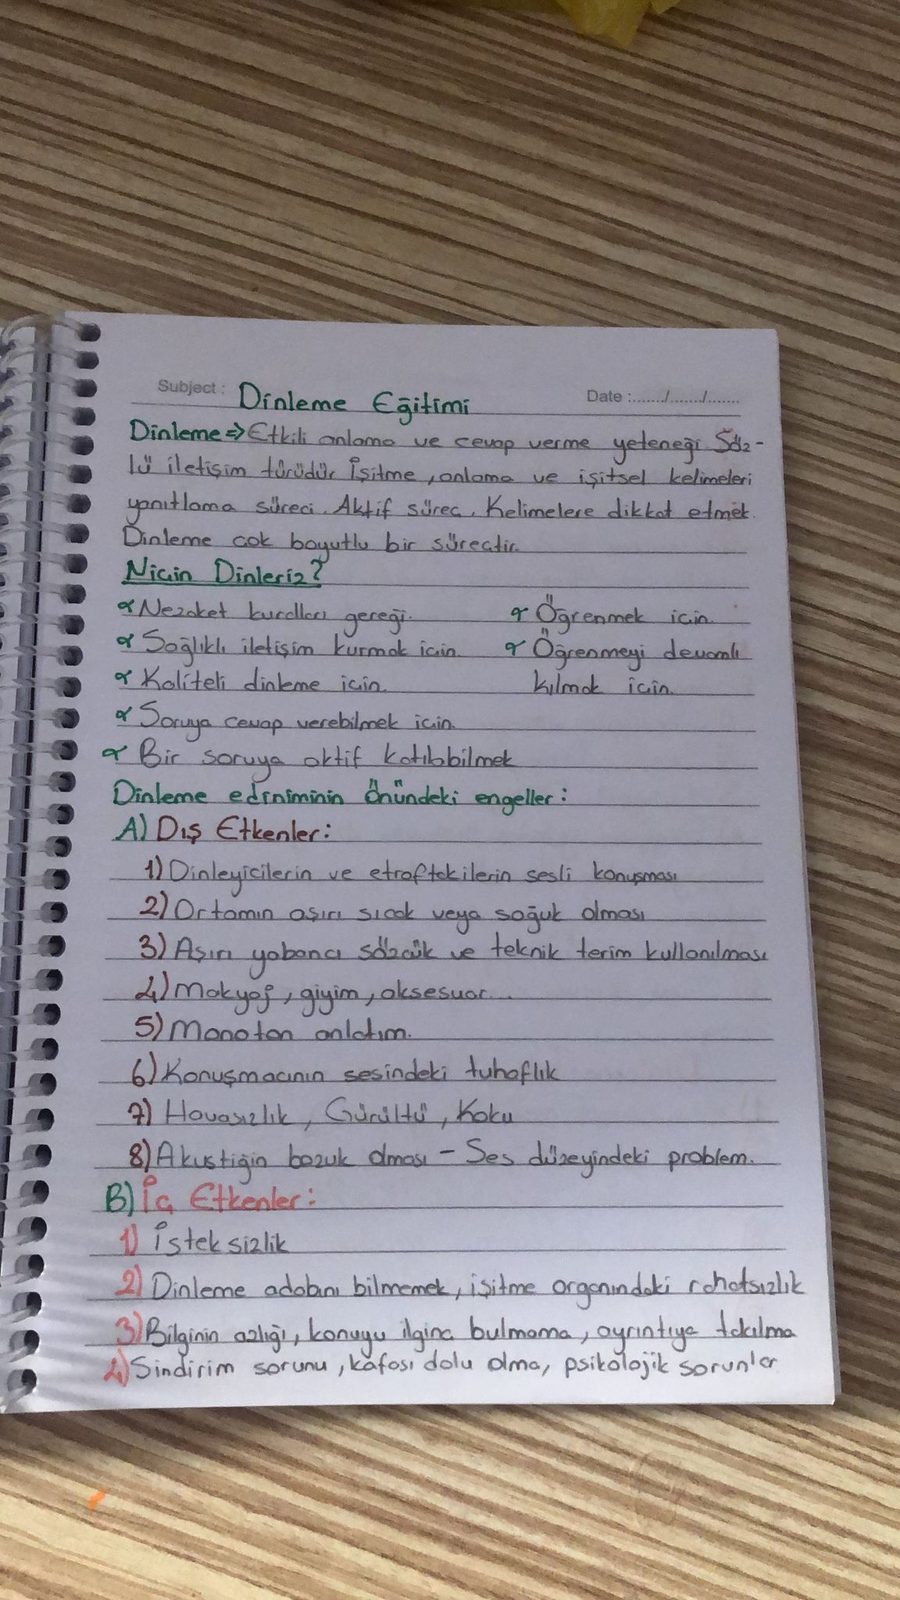 Subject : Dinleme Eğitimi Date :....../....../......
Dinleme => Etkili anlama ve cevap verme yeteneği Söz-
lü iletişim türüdür İşitme, anlama ve işitsel kelimeleri
yanıtlama süreci. Aktif süreç. Kelimelere dikkat etmek.
Dinleme çok boyutlu bir süreçtir.
Niçin Dinleriz?
Nezaket kuralları gereği.
Sağlıklı iletişim kurmak için.
Kaliteli dinleme için.
Soruya cevap verebilmek için.
Bir soruya aktif katılabilmek
Öğrenmek için.
Öğrenmeyi devamlı
kılmak için.
Dinleme ediniminin önündeki engeller :
A) Dış Etkenler :
1) Dinleyicilerin ve etraftakilerin sesli konuşması
2) Ortamın aşırı sıcak veya soğuk olması
3) Aşırı yabancı sözcük ve teknik terim kullanılması
4) Makyaj, giyim, aksesuar...
5) Monoton anlatım.
6) Konuşmacının sesindeki tuhaflık
7) Havasızlık, Gürültü, Koku
8) Akustiğin bozuk olması - Ses düzeyindeki problem.
B) İç Etkenler :
1) İsteksizlik
2) Dinleme adabını bilmemek, işitme organındaki rahatsızlık
3) Bilginin azlığı, konuyu ilginç bulmama, ayrıntıya takılma
4) Sindirim sorunu, kafası dolu olma, psikolojik sorunlar